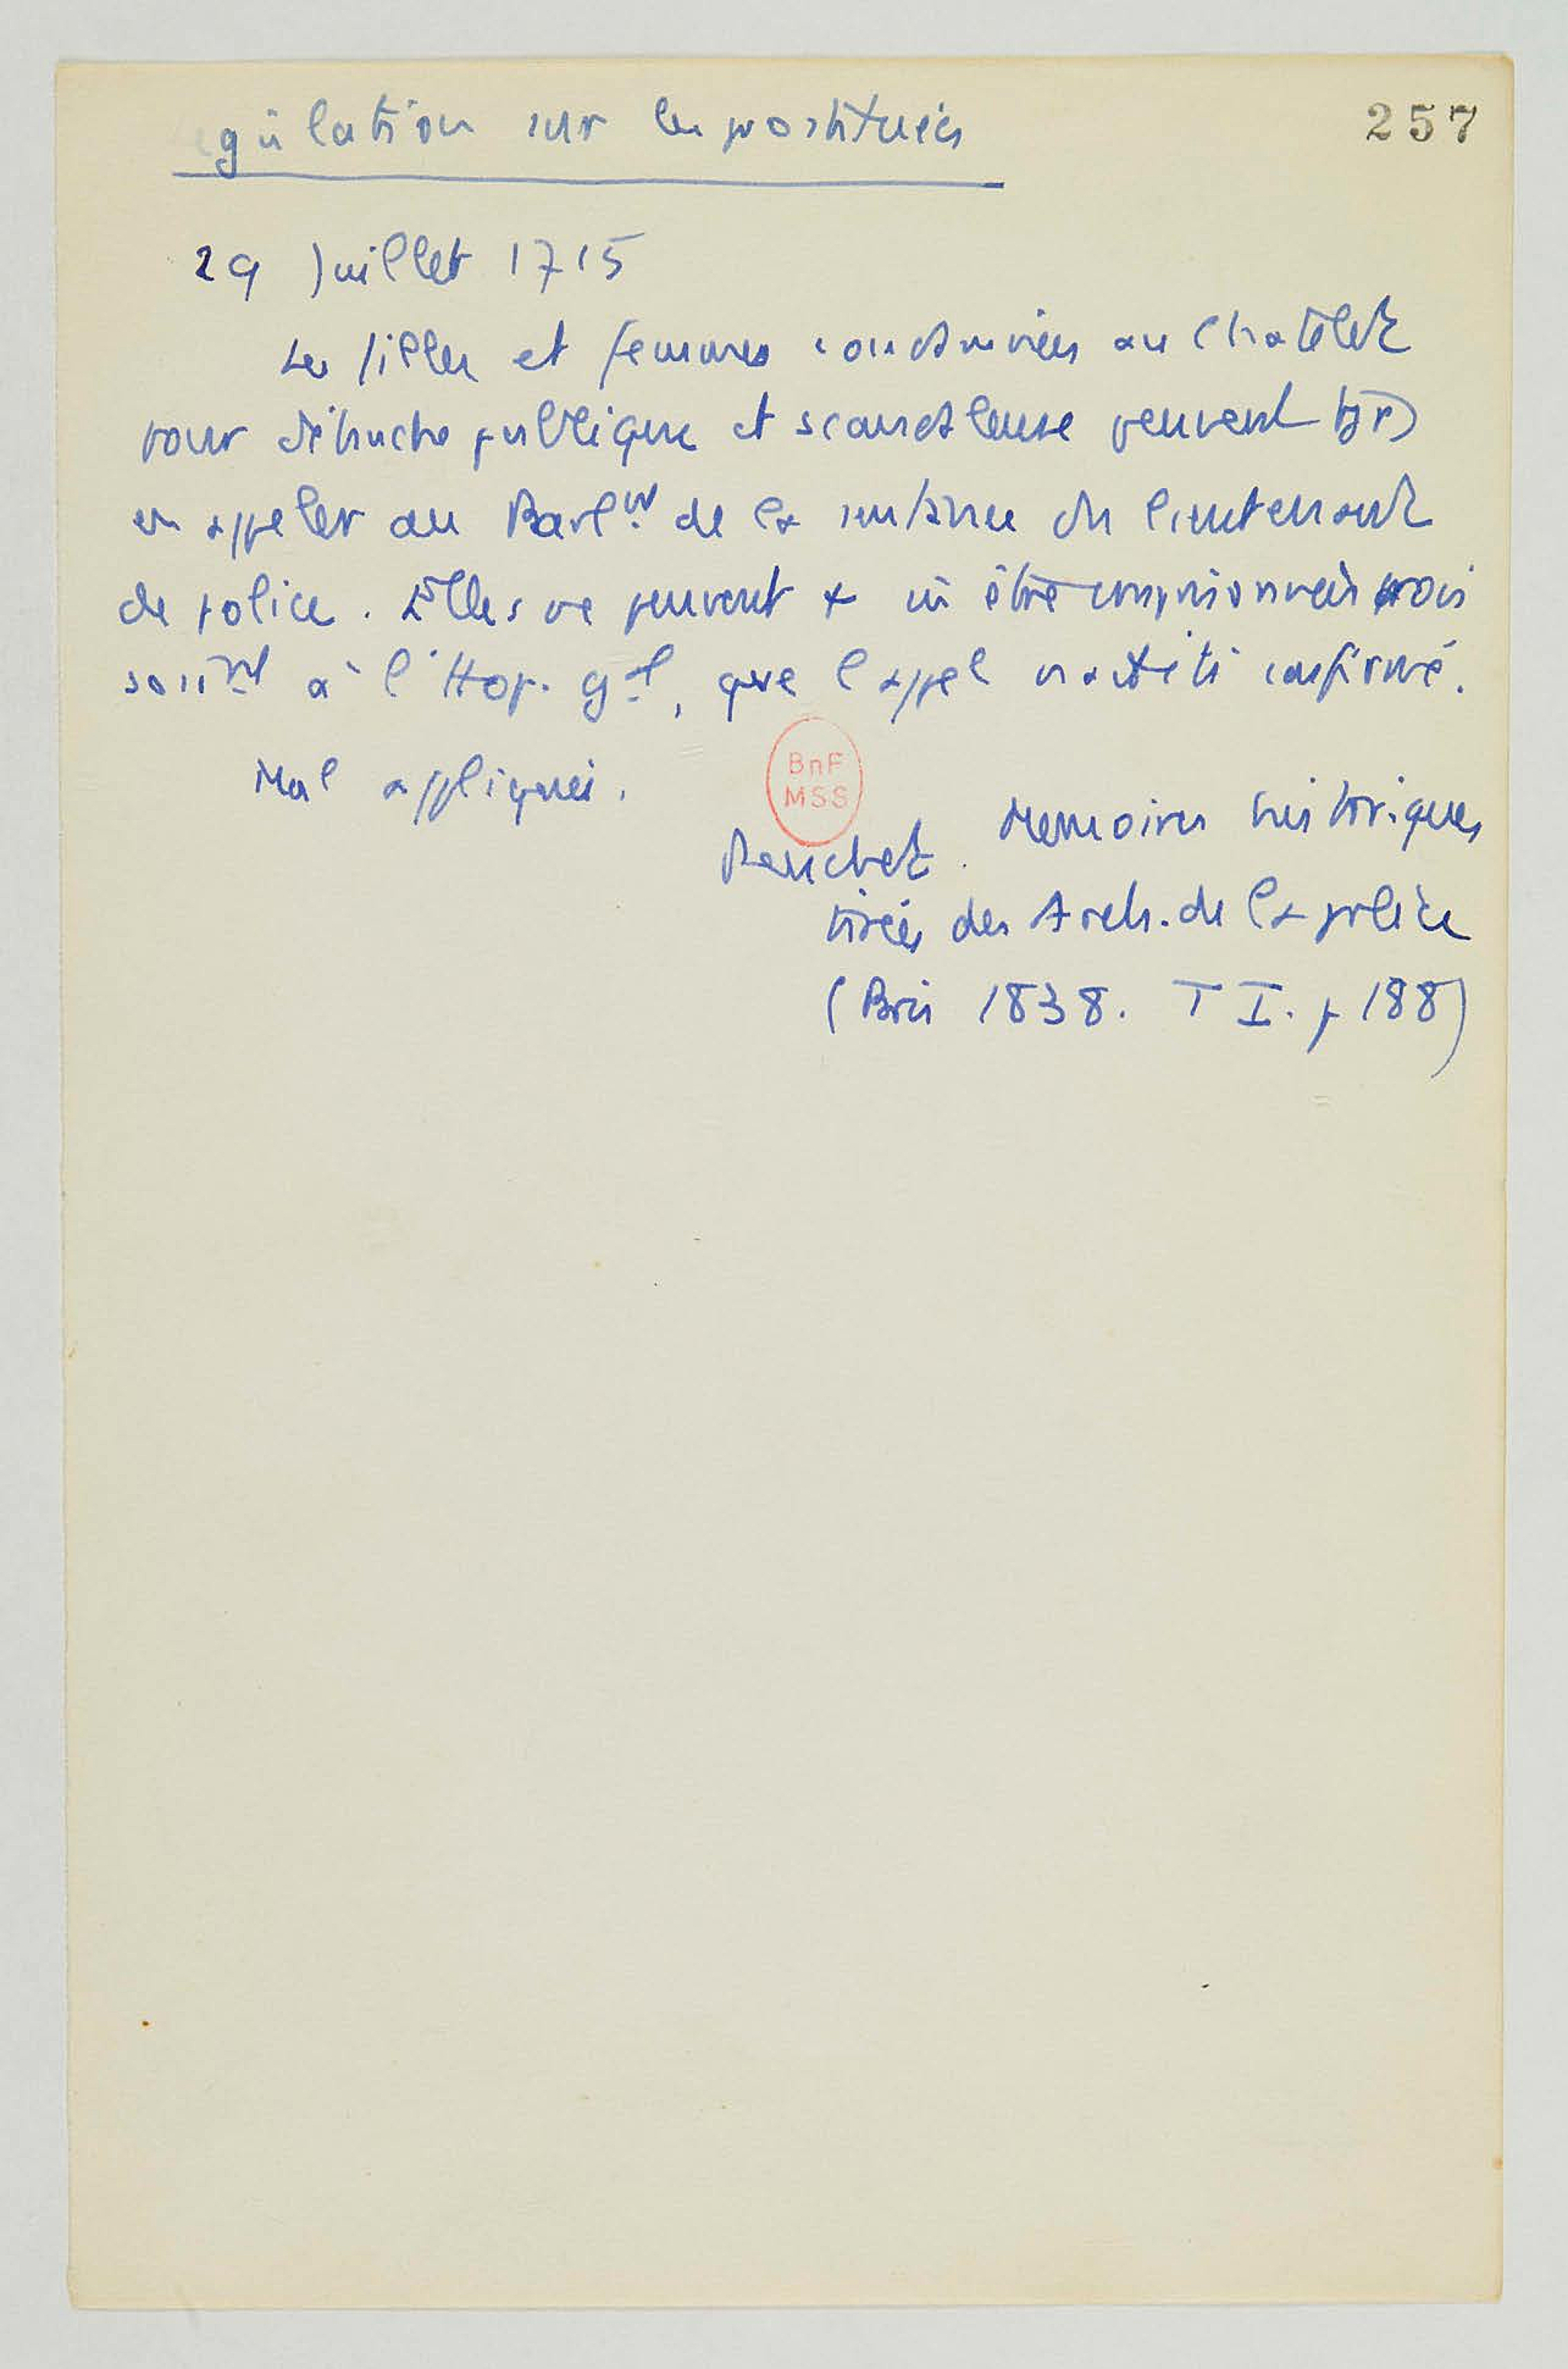 257
Régulation sur les prostituées
29 Juillet 1715
Les filles et femmes condamnées au Chatelet
pour débauche publique et scandaleuse peuvent tjrs
en appeler au Parl.nt de la sentence du lieutenant
de police. Elles ne peuvent être emprisonnées
à l'Hop. g.al, que l'appel n'ait été confirmé.
Mal appliquée.
BnF
MSS
Peuchet. Memoires historiques
tirées des Arch. de la police
(Paris 1838. T I. p 188)